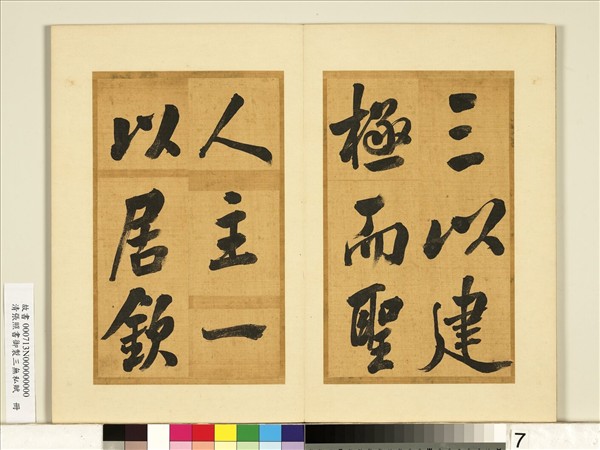 三以建
極而聖
人主一
以居欽
故書 000713N000000000
清張照書御製三無私賦 冊
7